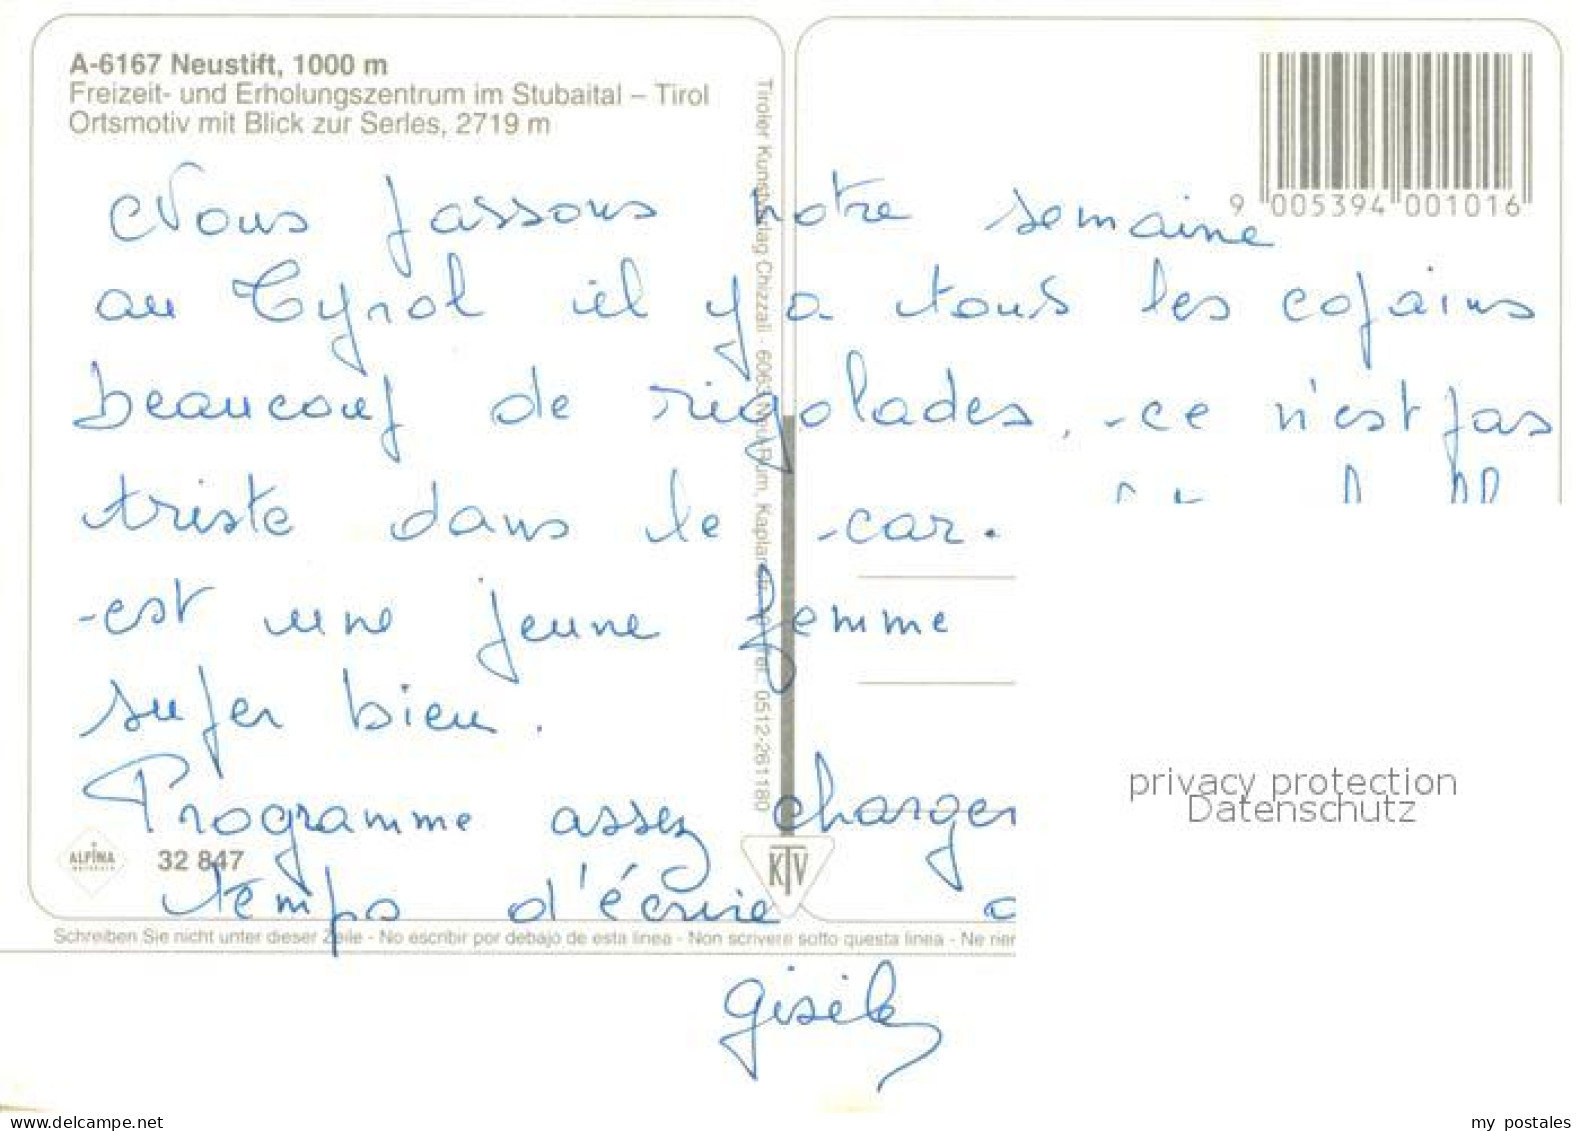 A-6167 Neustift, 1000 m
Freizeit- und Erholungszentrum im Stubaital – Tirol
Ortsmotiv mit Blick zur Serles, 2719 m
9 005394 001016
Nous passons notre semaine
au Tyrol il y a tous les copains
beaucoup de rigolades, ce n'est pas
triste dans le car.
est une jeune femme
super bien.
Programme assez charger
temps d'écrire
gisèle
Tiroler Kunstverlag Chizzali · 6063 Neu-Rum, Kaplanstr. Tel. 0512-261180
ALPINA
32 847
KTV
Schreiben Sie nicht unter dieser Zeile - No escribir por debajo de esta linea - Non scrivere sotto questa linea - Ne rien
privacy protection
Datenschutz
www.delcampe.net
my postales